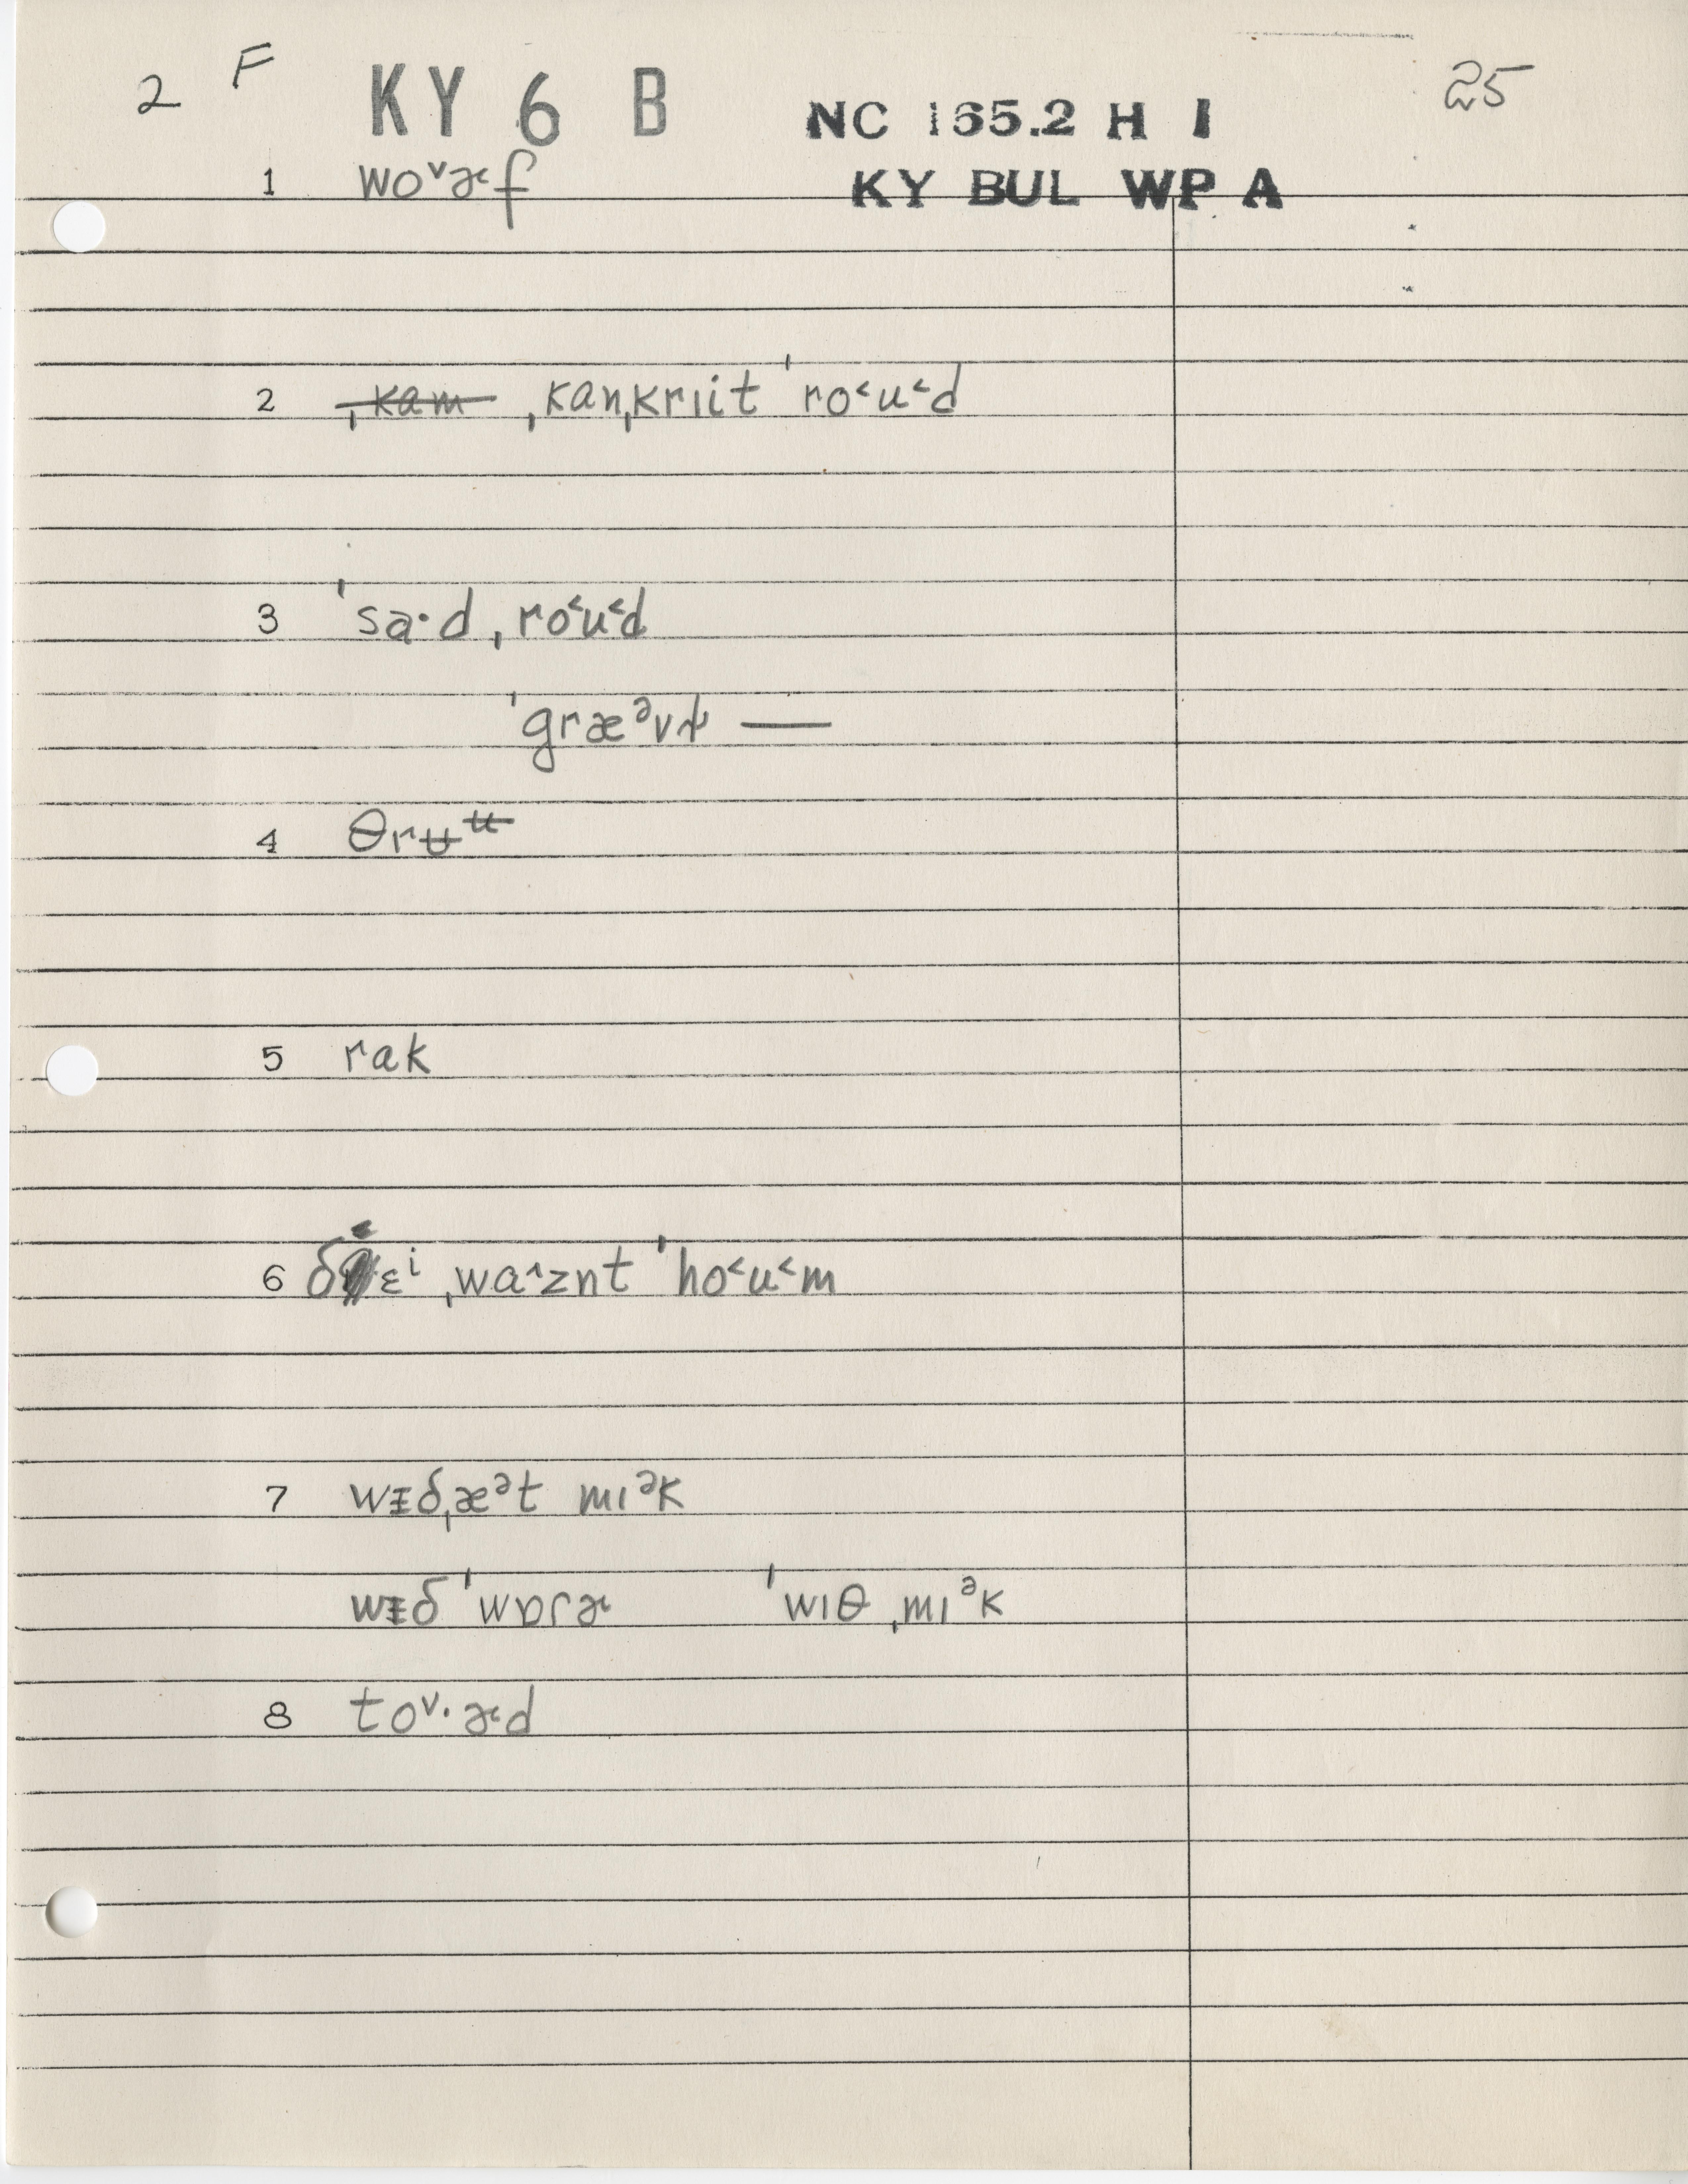 2 F KY 6 B NC 165.2 H I 25
1 woᵛɚf KY BUL WP A
2 ~~ˌkam~~ ˌkanˌkrɪit ˈro˂u˂d
3 ˈsɑ·d ˌro˂u˂d
ˈgræᵊvɫ̩ —
4 θrʉᵘ̶
5 rak
6 δɛⁱ ˌwa˄znt ˈho˂u˂m
7 wᵻδˌæᵊt mɪᵊk
wᵻδ ˈwɒɾɚ ˈwɪθ ˌmɪᵊk
8 toᵛ·ɚd